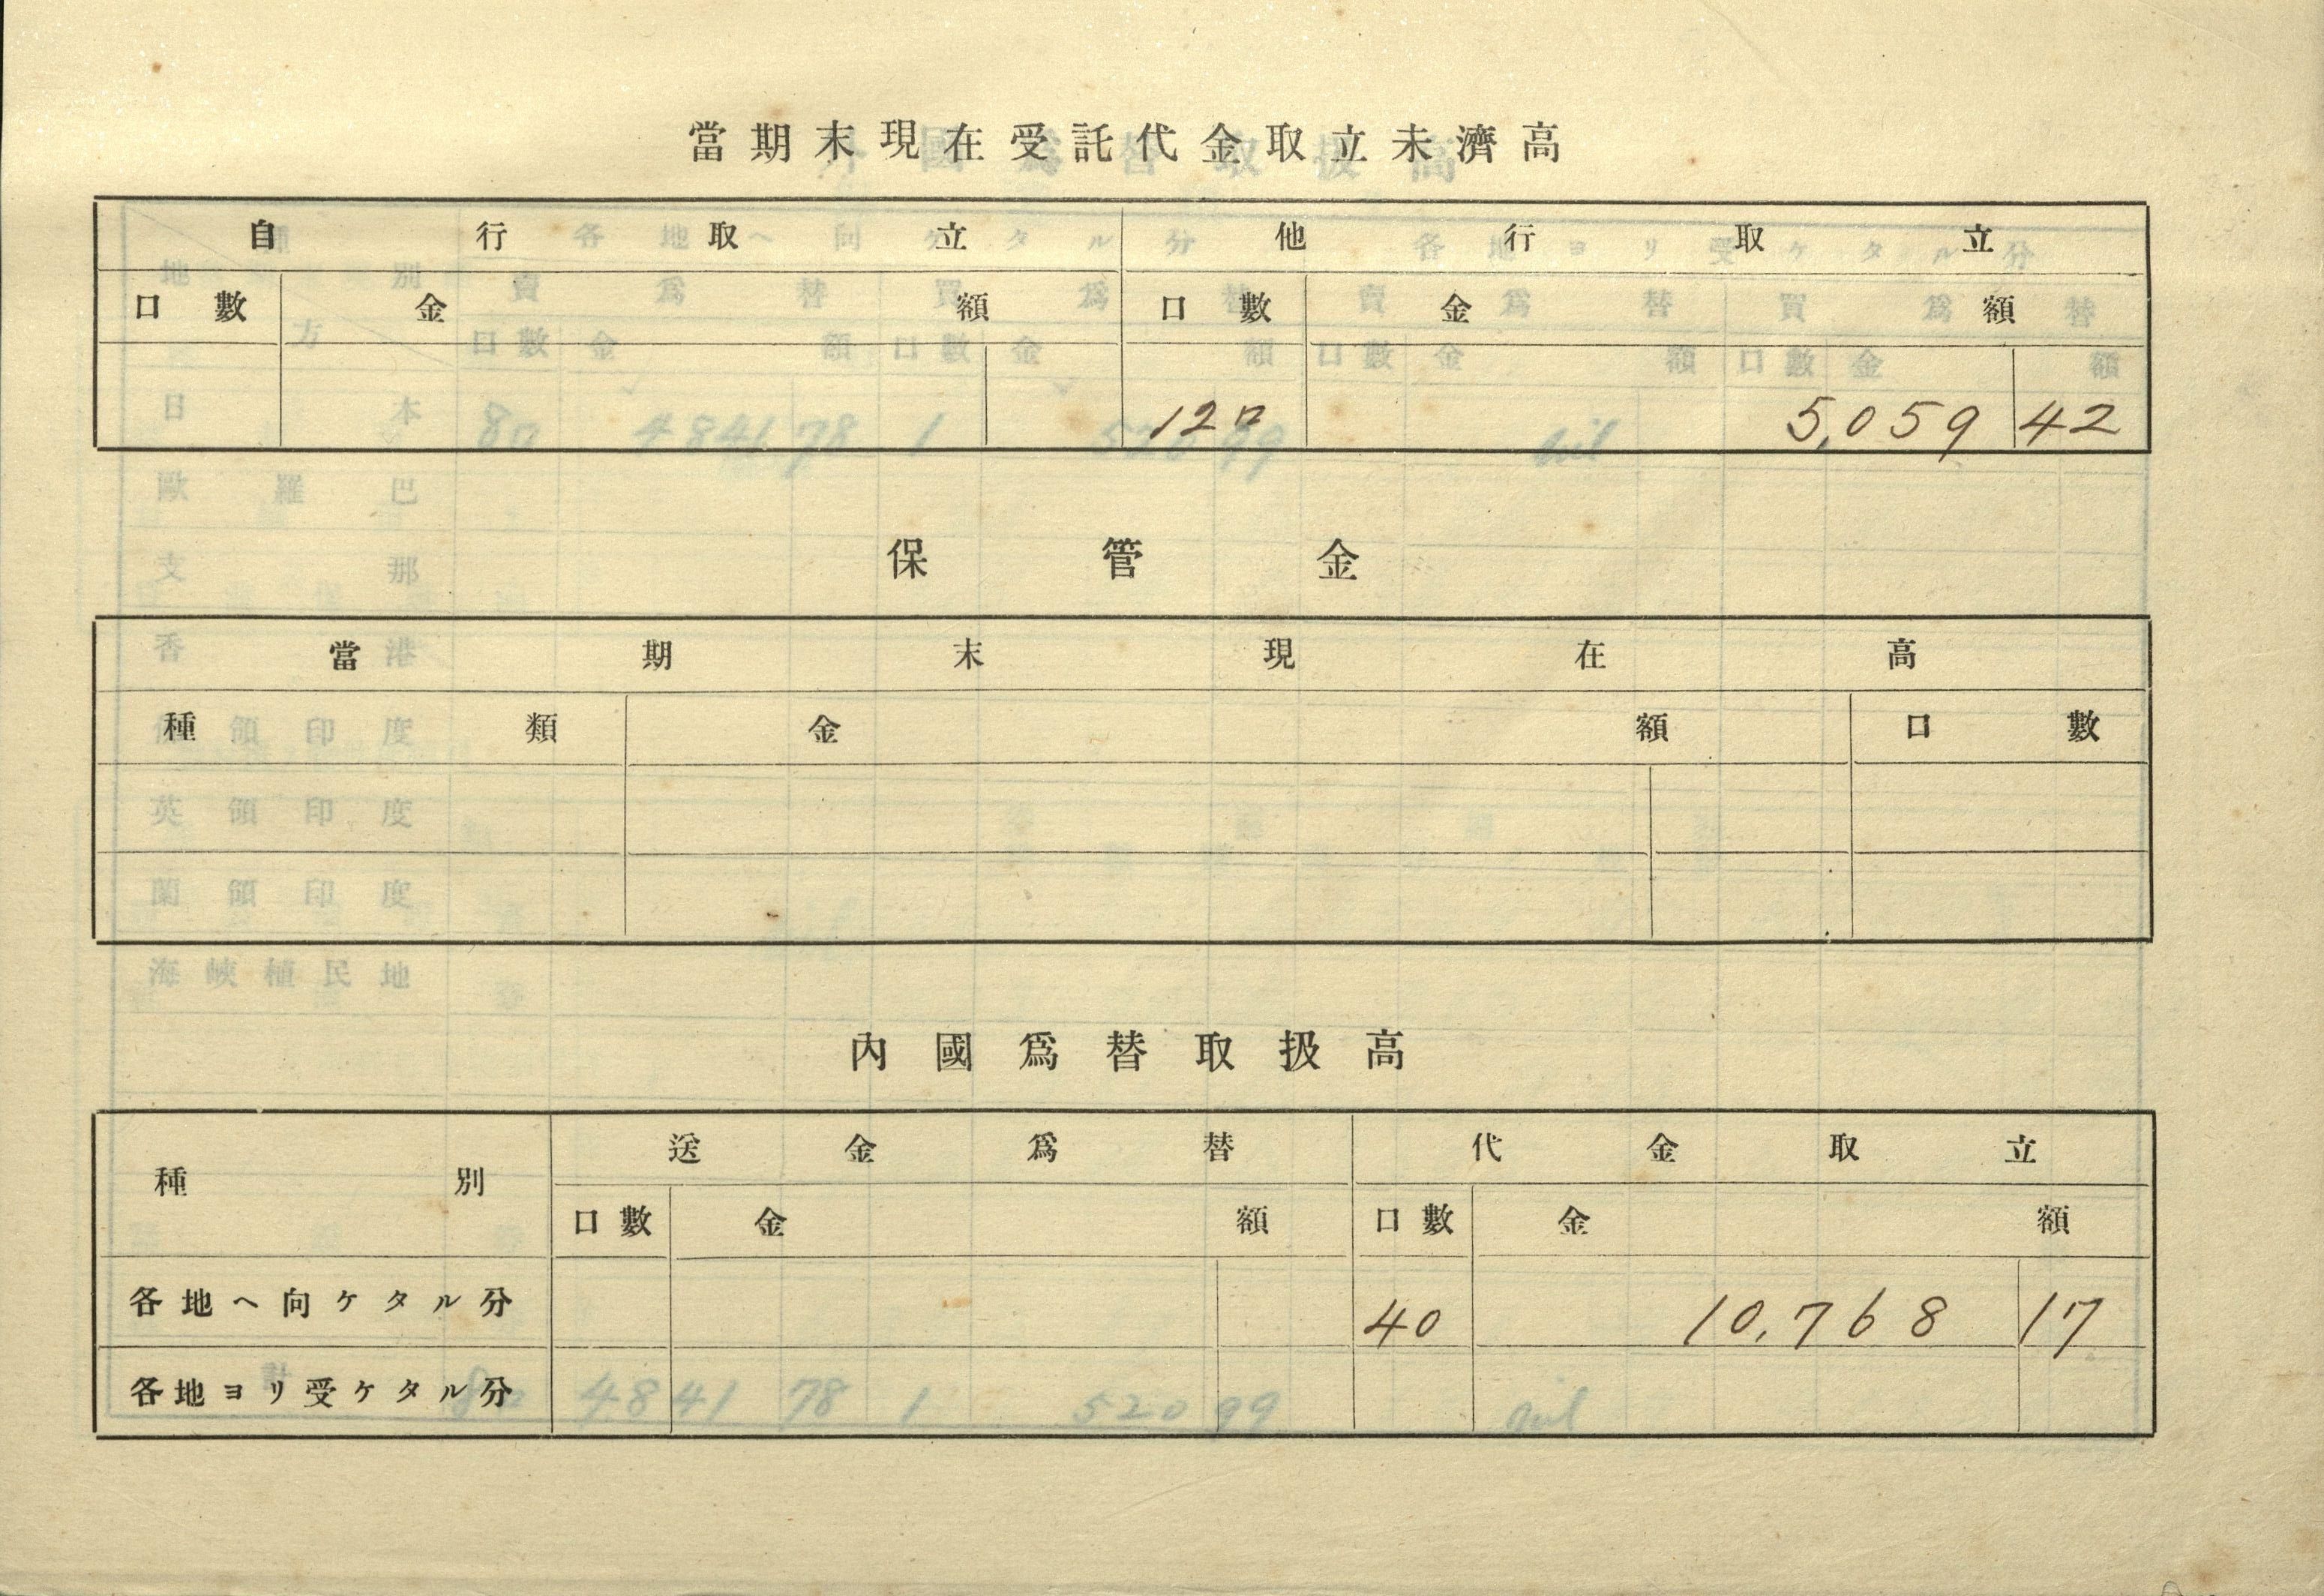 當期末現在受託代金取立未濟高
自行取立 他行取立
口數 金額 口數 金額
12口 5,059 42
保管金
當期末現在高
種類 金額 口數
內國爲替取扱高
種別 送金爲替 代金取立
口數 金額 口數 金額
各地ヘ向ケタル分 40 10,768 17
各地ヨリ受ケタル分